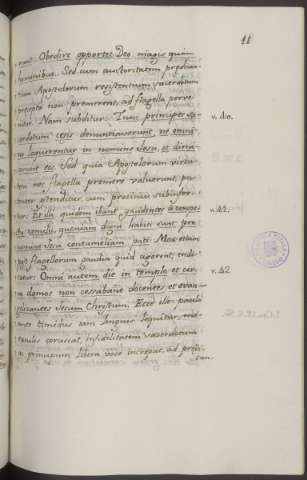 11
erunt. Obedire oportet Deo magis quàm
hominibus. Sed cum auctoritatem prædican-
tium Apostolorum resistentium sacerdotum
præcepta non premerent, ad flagella perve
nitur. Nam subditur: Tunc principes sa-
cerdotum cesis denuntiaverunt, ne omni
no loquerentur in nomine Jesu, et dimi-
serunt eos. Sed quia Apostolorum virtu
tem nec flagella premere valuerunt, pa-
tenter ostenditur, cum protinus subinfer-
tur: Et illi quidem ibant gaudentes à conspec
tu concilii, quoniam digni habiti sunt pro
nomine Jesu contumeliam pati. Mox etiam
post flagellorum gaudia quid agerent, ende
ratur: Omni autem die in templo et cir
ca domos non cessabant docentes et evan
gelizantes Jesum Christum. Ecce ille, paulò
ante timidus iam linguis loquitur, mi-
raculis coruscat, infidelitatem sacerdotum
ac principum libera voce increpat, ad prædi-
can.
v. 40.
v. 41.
v. 42